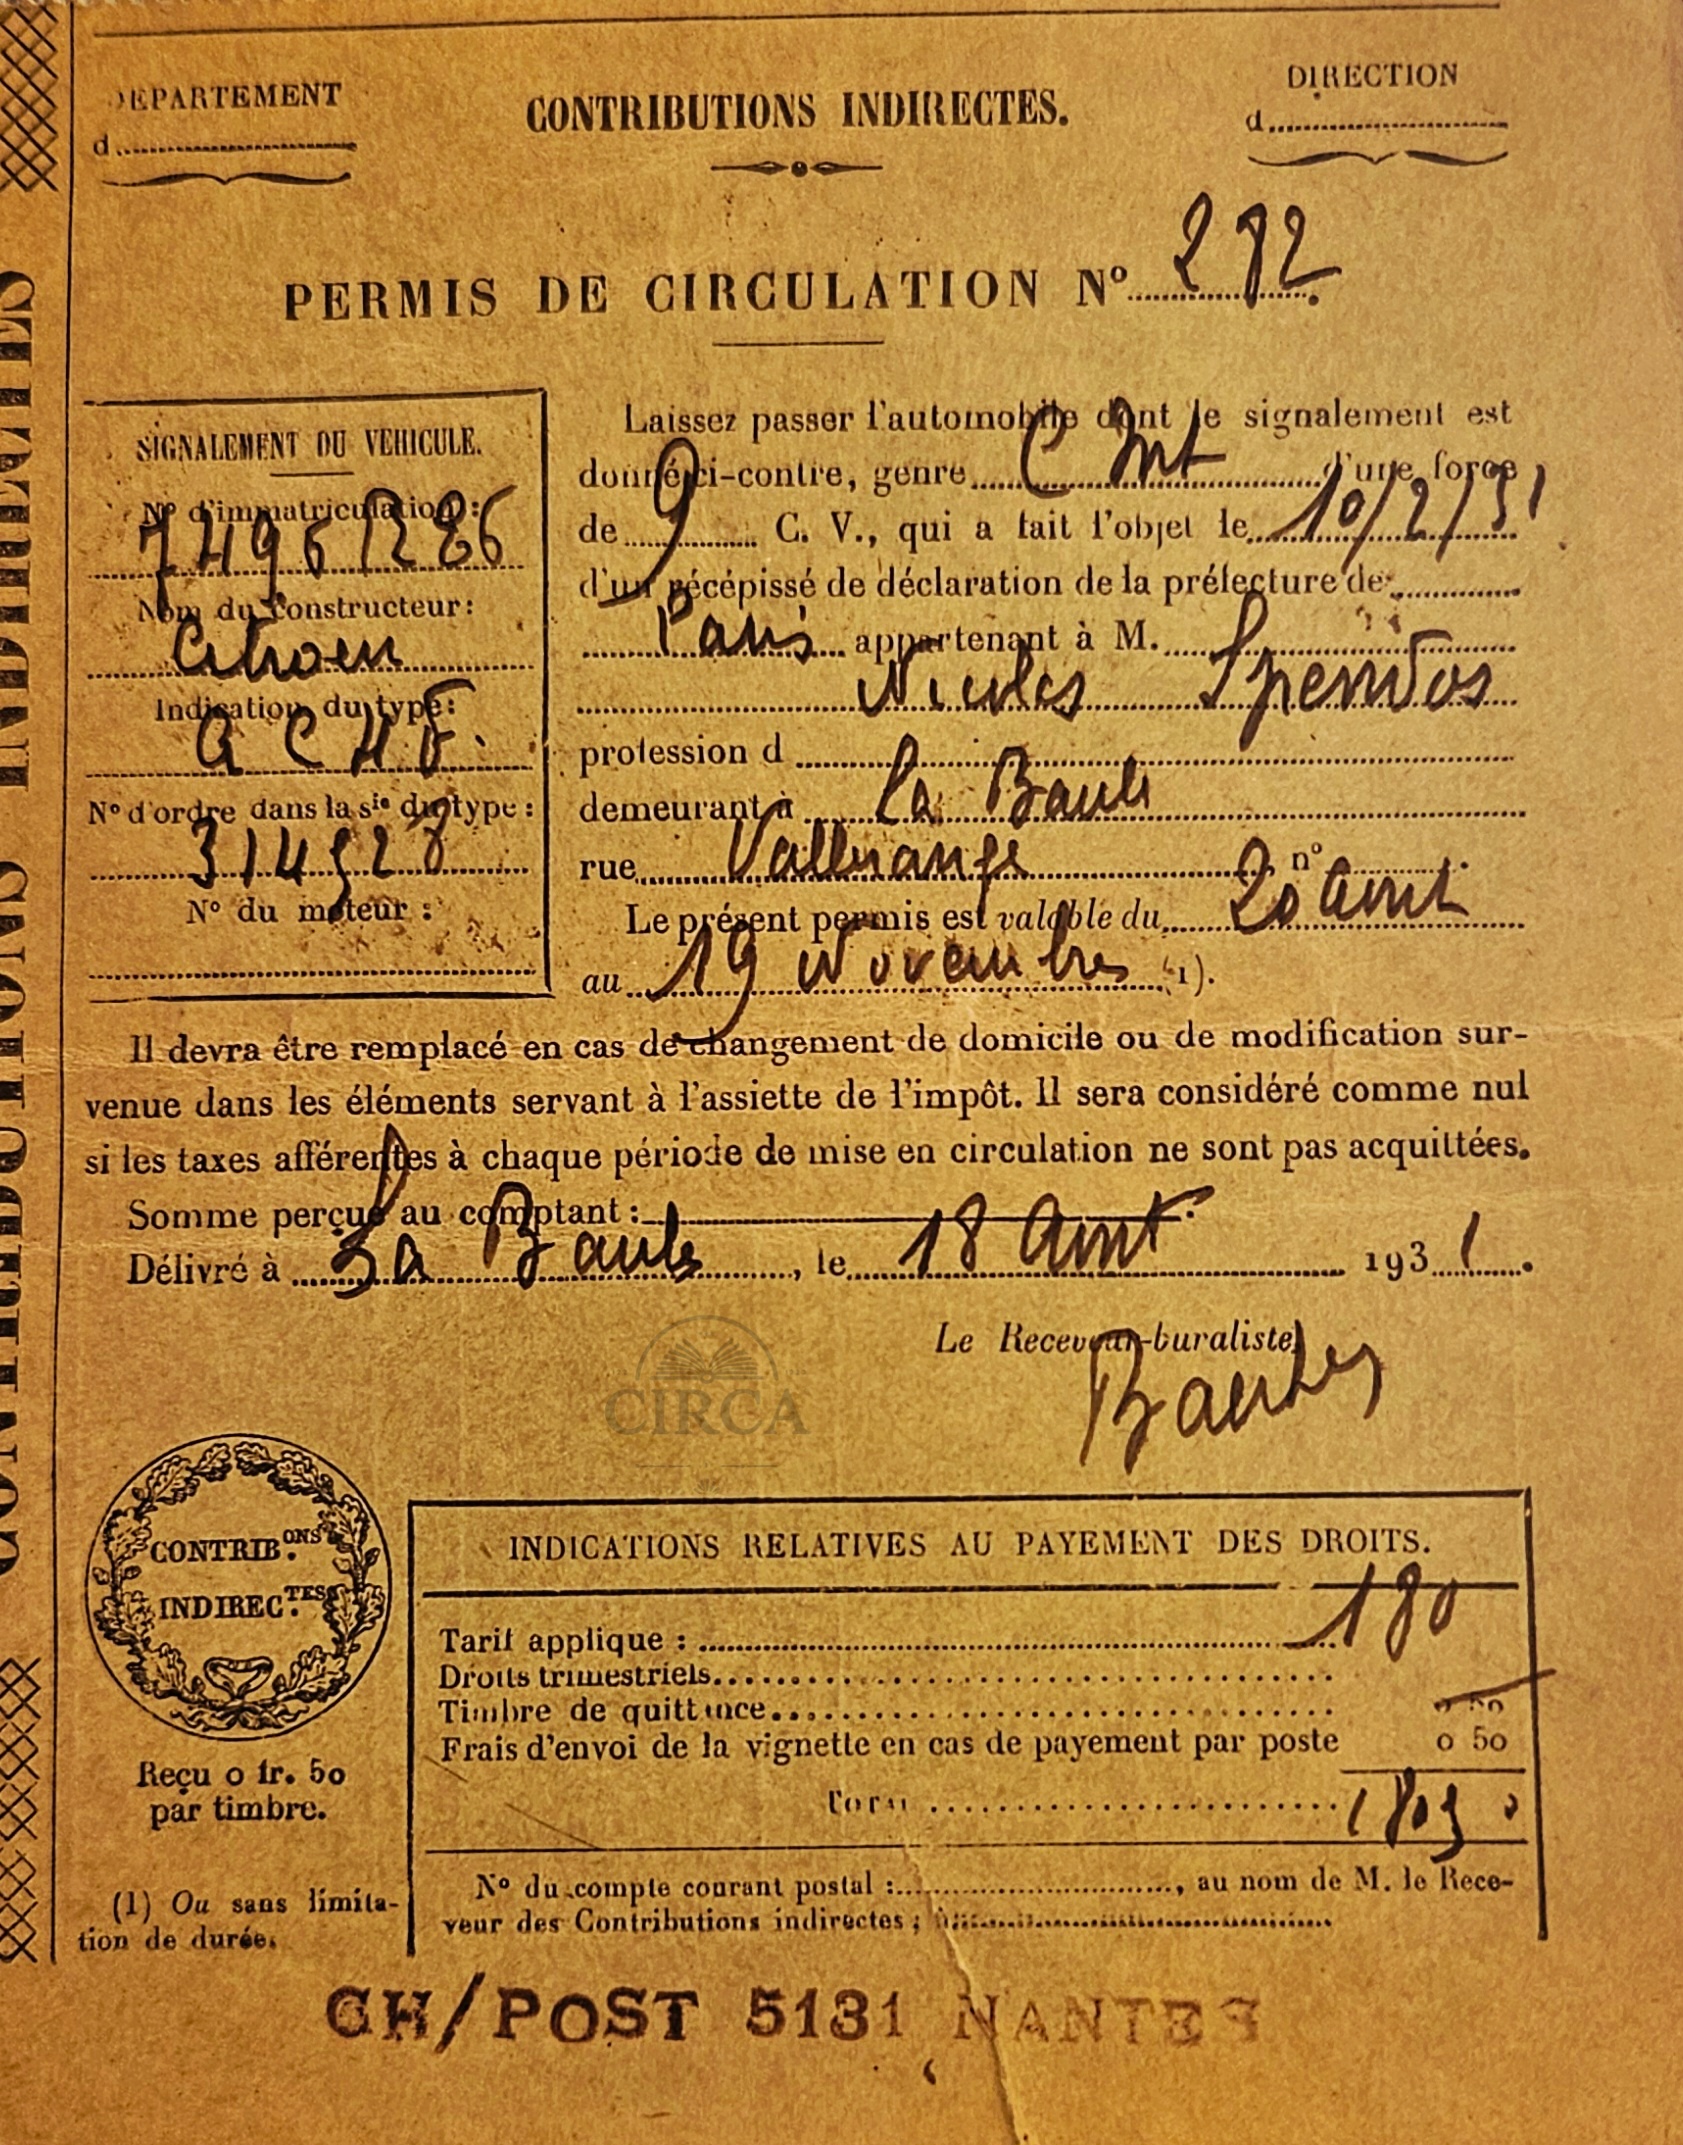 CONTRIBUTIONS INDIRECTES
DEPARTEMENT
d
CONTRIBUTIONS INDIRECTES.
DIRECTION
d
PERMIS DE CIRCULATION Nº 282.
SIGNALEMENT DU VEHICULE.
Nº d'immatriculation :
Nom du constructeur :
Citroen
Indication du type :
Nº d'ordre dans la sie du type :
314528
Nº du moteur :
Laissez passer l'automobile dont le signalement est
donné ci-contre, genre d'une force
de 9 C. V., qui a fait l'objet le 10/2/31
d'un récépissé de déclaration de la préfecture de
Paris appartenant à M.
Nicolas
profession d
demeurant à La Baule
rue nº
Le présent permis est valable du 20 Aout
au 19 Novembre (1).
Il devra être remplacé en cas de changement de domicile ou de modification sur-
venue dans les éléments servant à l'assiette de l'impôt. Il sera considéré comme nul
si les taxes afférentes à chaque période de mise en circulation ne sont pas acquittées.
Somme perçue au comptant :
Délivré à La Baule, le 18 Aout 1931.
Le Receveur-buraliste,
CIRCA
CONTRIB.ONS
INDIREC.TES
Reçu 0 fr. 50
par timbre.
(1) Ou sans limita-
tion de durée.
INDICATIONS RELATIVES AU PAYEMENT DES DROITS.
Tarif applique : 180
Droits trimestriels
Timbre de quittance 0 50
Frais d'envoi de la vignette en cas de payement par poste 0 50
TOTAL 180 50
Nº du compte courant postal : , au nom de M. le Rece-
veur des Contributions indirectes ; à
CH/POST 5131 NANTES